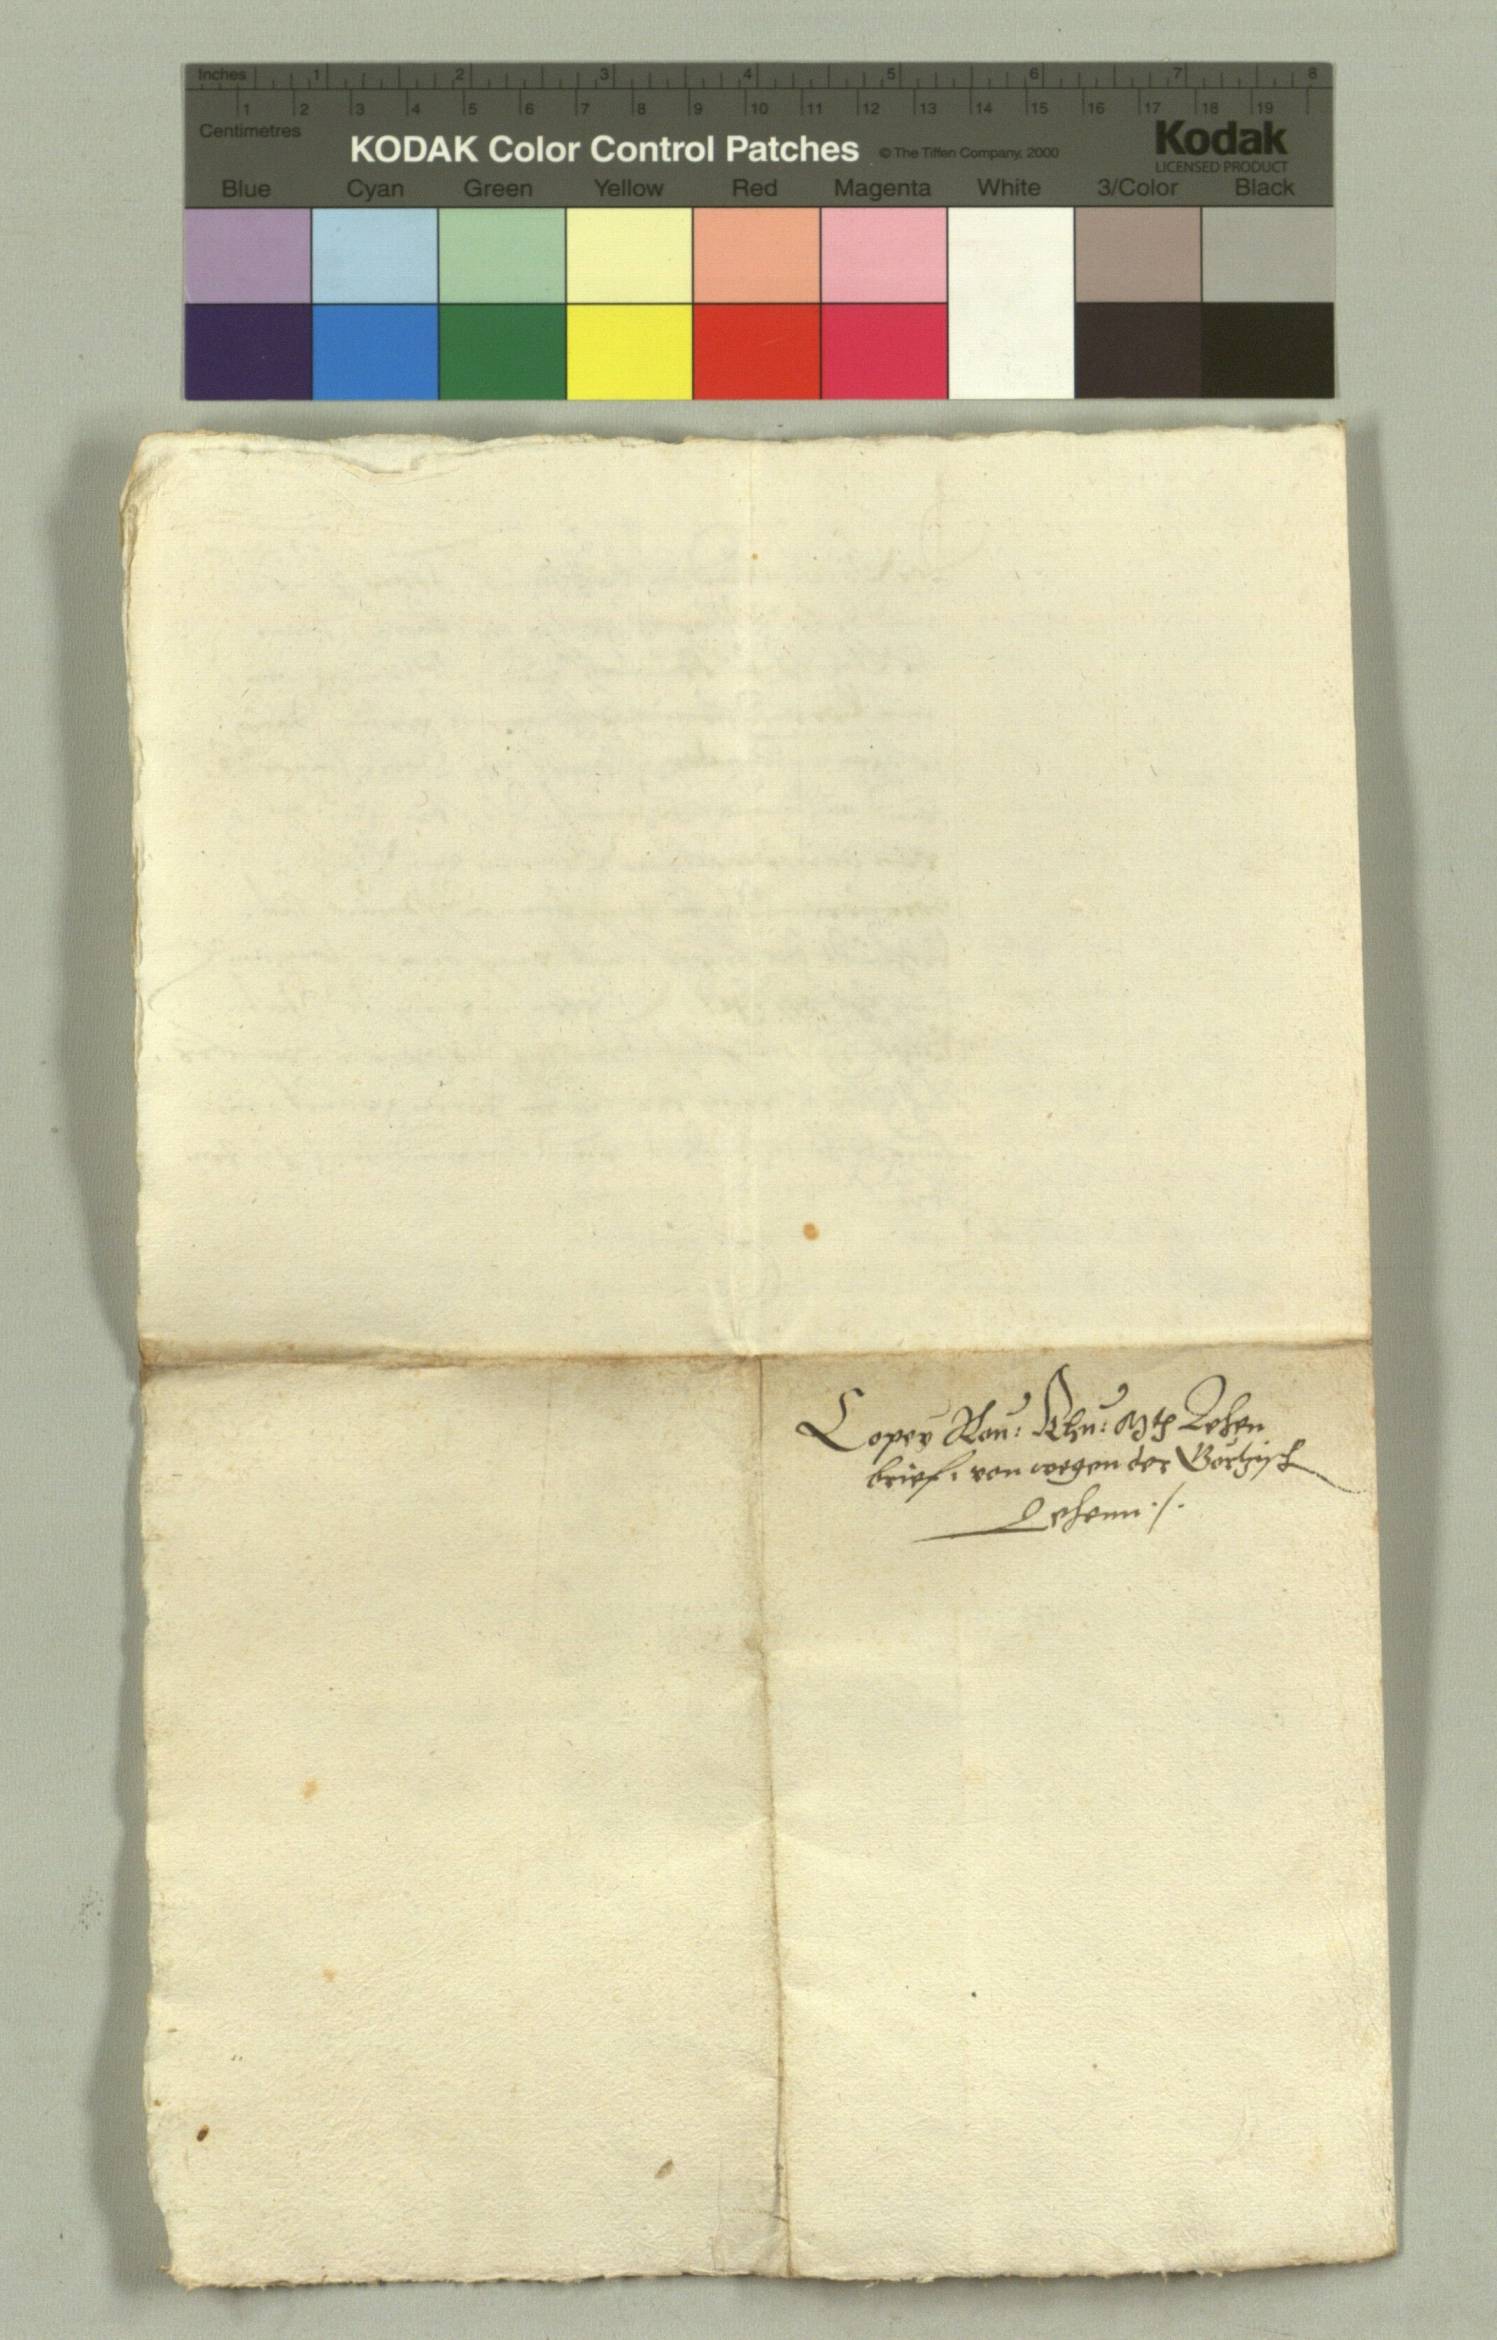 Inches 1 2 3 4 5 6 7 8
1 2 3 4 5 6 7 8 9 10 11 12 13 14 15 16 17 18 19
Centimetres
KODAK Color Control Patches © The Tiffen Company, 2000 Kodak
LICENSED PRODUCT
Blue Cyan Green Yellow Red Magenta White 3/Color Black
Copey Rö: Khü: Mt Lehen
brief, von wegen der Görtzisch
Lehenn ./.